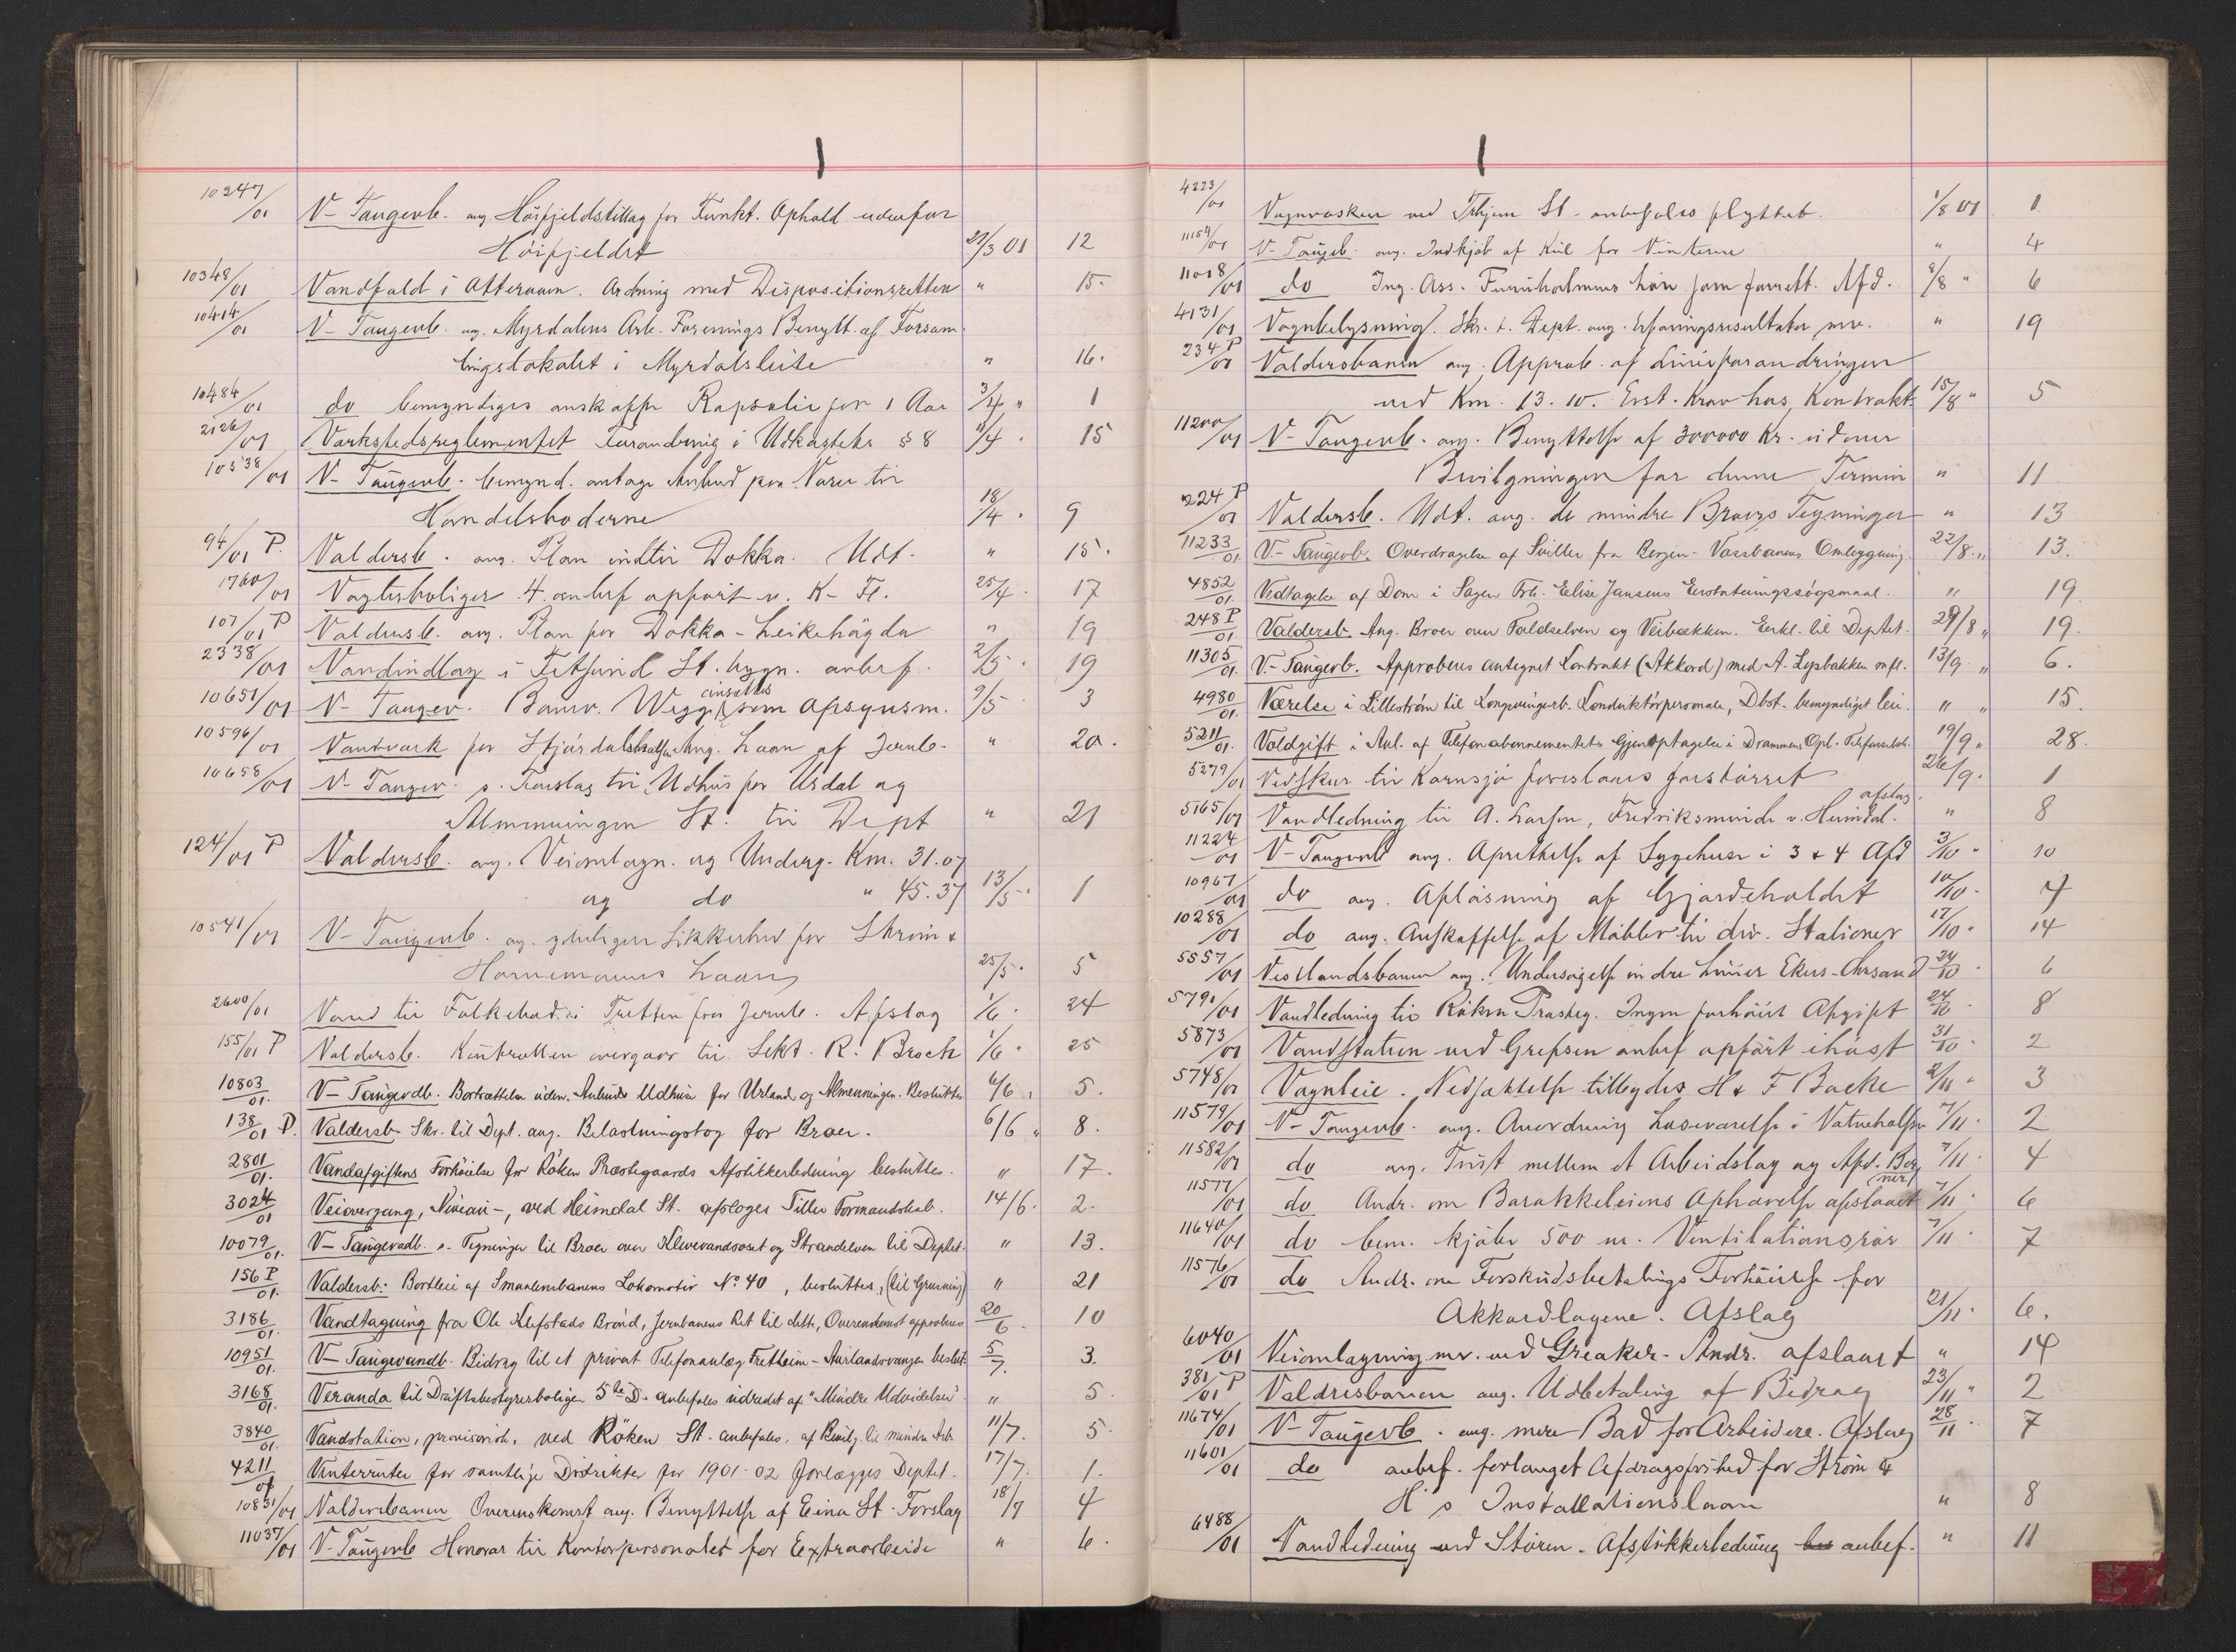 10247/01 V-Taugevb. ang. Höifjeldstillæg for Funkt. Ophold udenfor
Höifjeldet 27/3 01 12
10348/01 Vandfald i Atteraaen. Ordning med Dispositionsretten " 15.
10414/01 V-Taugevb. ang. Myrdalens Arb. Forenings Benytt. af Forsam-
lingslokalet i Myrdalsleite " 16.
10486/01 do bemyndiges anskaffe Rapsolie for 1 Aar 3/4 " 1
2126/01 Værkstedsreglementet Forandring i Udkastets § 8 11/4 . 15
10538/01 V-Taugevb. bemynd. antage Anbud paa Varer til
Handelsboderne 18/4 . 9
94/01 P. Valdersb. ang. Plan indtil Dokka. Udt. " 15.
1760/01 Vogterboliger 4 anbef opført v. K-Fl. 25/4 . 17
107/01 P Valdersb. ang. Plan for Dokka-Leikehögda " 19
2338/01 Vandindlæg i Fetsund St. bygn. anbef. 2/5 . 19
10651/01 V-Taugev. Banev. Wegge indsættes som Opsynsm. 9/5 3
10596/01 Vandværk for Stjørdalshalsen Ang. Laan af Jernb. " 20.
10658/01 V-Taugev. s. Forslag til Udhus for Urdal og
Almenningen St. til Dept " 21
124/01 P Valdersb. ang. Veiomlægn. og Underg. Km. 31.07
og do " 45.37 13/5 . 1
10541/01 V-Taugevb. ang. yderligere Sikkerhed for Ström &
Hornemanns Laan 25/5 . 5
2600/01 Vand til Folkebad i Tretten fra Jernb. Afslag 1/6 . 24
155/01 P Valdersb. Kontrollen overgaar til Sekt. R. Broch 1/6 . 25
10803/01. V-Taugevdb. Bortsættelse uden Anbud Udhuse for Urland og Almenningen. Besluttes 6/6 . 5.
138/01 P. Valdersb. Skr. til Dept. ang. Belastningstog for Broer. 6/6 " 8.
2801/01. Vandafgiftens Forhöielse for Röken Præstegaards Afstikkerledning besluttes. " 17.
3024/01 Veiovergang, Niveau-, ved Heimdal St. afslages Tiller Formandskab. 14/6. 2.
10079/01. V-Taugevadb. s. Tegninger til Broer over Klevevandsoset og Strandelven til Deptet. " 13.
156 P/01. Valdersb: Bortleie af Smaalensbanens Lokomotiv No 40, besluttes, (til Grusning) " 21
3186/01. Vandtagning fra Ole Klefstads Brönd, Jernbanens Ret til dette, Overenskomst approberes 20/6. 10
10951/01. V-Taugevandb. Bidrag til et privat Telefonanlæg Fretheim-Aurlandsvangen beslut. 5/7. 3.
3168/01. Veranda til Driftsbestyrerboligen 5te D. anbefales udredet af "Mindre Udvidelser". " 5.
3840/01. Vandstation, provisorisk, ved Röken St. anbefales, af Bevilg. til mindre Arb. 11/7. 5.
4211/01 Vinterruter for samtlige Distrikter for 1901-02 forlægges Deptet. 17/7. 1.
10831/01 Valdersbanen Overenskomst ang. Benyttelse af Eina St. Forslag 18/7 4
11037/01 V-Taugevb Honorar til Kontorpersonalet for Extraarbeide " 6.
4223/01 Vognvasken ved Skjern St. anbefales flyttet. 1/8 01 1
11154/01 V-Taugeb. ang. Indkjöb af Kul for Vinteren " 4
11018/01 do Ing. Ass. Furuholmens hön. som forrett. Afd. 8/8 " 6
4131/01 Vognbelysning. Skr. t. Dept. ang. Erfaringsresultater mv. " 19
234 P/01 Valdersbanen ang. Approb. af Linieforandringen
ved Km. 13.10. Erst. Krav hos Kontrakt. 15/8 " 5
11200/01 V-Taugevb. ang. Benyttelse af 300000 Kr. udover
Bevilgningen for denne Termin " 11
224 P/01 Valdersb. Udt. ang. de mindre Broers Tegninger " 13
11233/01. V-Taugevb. Overdragelse af Sviller fra Bergen-Vossbanens Omlægning 22/8 " 13.
4852/01. Vedtagelse af Dom i Sagen Frk. Elise Jansens Erstatningssögsmaal. " 19.
248 P/01. Valdersb. Ang. Broer over Foldselven og Veibækken. Erkl. til Deptet. 29/8 " 19.
11305/01. V-Taugevb. Approberes antegnet Kontrakt (Akkord) med A. Lysbakken mfl. 13/9 " 6.
4980/01. Værelse i Lilleström til Kongsvingerb. Konduktörpersonale, Dbst. bemyndiget leie. " " 15.
5211/01. Voldgift i Anl. af Telefonabonnementets Gjenoptagelse i Drammens Opl. Telefonselsk. 19/9 " 28.
5279/01 Vedskur til Kornsjø foreslaaes forstörret 26/9. 1
5165/01 Vandledning til A. Larsen, Fredriksminde v. Heimdal. afslag. " 8
11224/01 V-Taugevb ang. Oprettelse af Sygehuse i 3 & 4 Afd 3/10 " 10
10967/01 do ang. Aflösning af Gjærdeholdet 10/10 . 4
10288/01 do ang. Anskaffelse af Möbler til div. Stationer 17/10 . 14
5557/01 Vestlandsbanen ang. Undersögelse indre Linier Ekers-Chrsand 24/10 . 6
5791/01 Vandledning til Röken Prosteg. Ingen forhöiet Afgift 24/10 . 8
5873/01 Vandstation ved Grefsen anbef opfört ihöst 31/10 . 2
5748/01 Vognleie. Nedsættelse tilbydes H & F Backe 2/11 . 3
11579/01 V-Taugevb. ang. Anordning Læseværelse i Vatnehalsen 7/11 . 2
11582/01 do ang. Tvist mellem et Arbeidslag og Afd. Ber 7/11 . 4
11577/01 do Andr. om Barakkeleiens Ophævelse afslaaet 7/11 . 6
11640/01 do bem. kjöbe 500 m. Ventilationsrör 7/11 . 7
11576/01 do Andr. om Forskudsbetalings Forhöielse for
Akkordlagene. Afslag 21/11 . 6.
6040/01 Veiomlægning mv. ved Greaker. Andr. afslaaet " 14
381/01 P Valdrisbanen ang. Udbetaling af Bidrag 23/11 " 2
11674/01 V-Taugevb. ang. mere Bad for Arbeidere. Afslag 28/11 . 7
11601/01 do anbef. forlanget Afdragsfrihed for Ström &
H's Installationslaan " 8
6488/01 Vandledning ved Stören. Afstikkerledning anbef. " 11